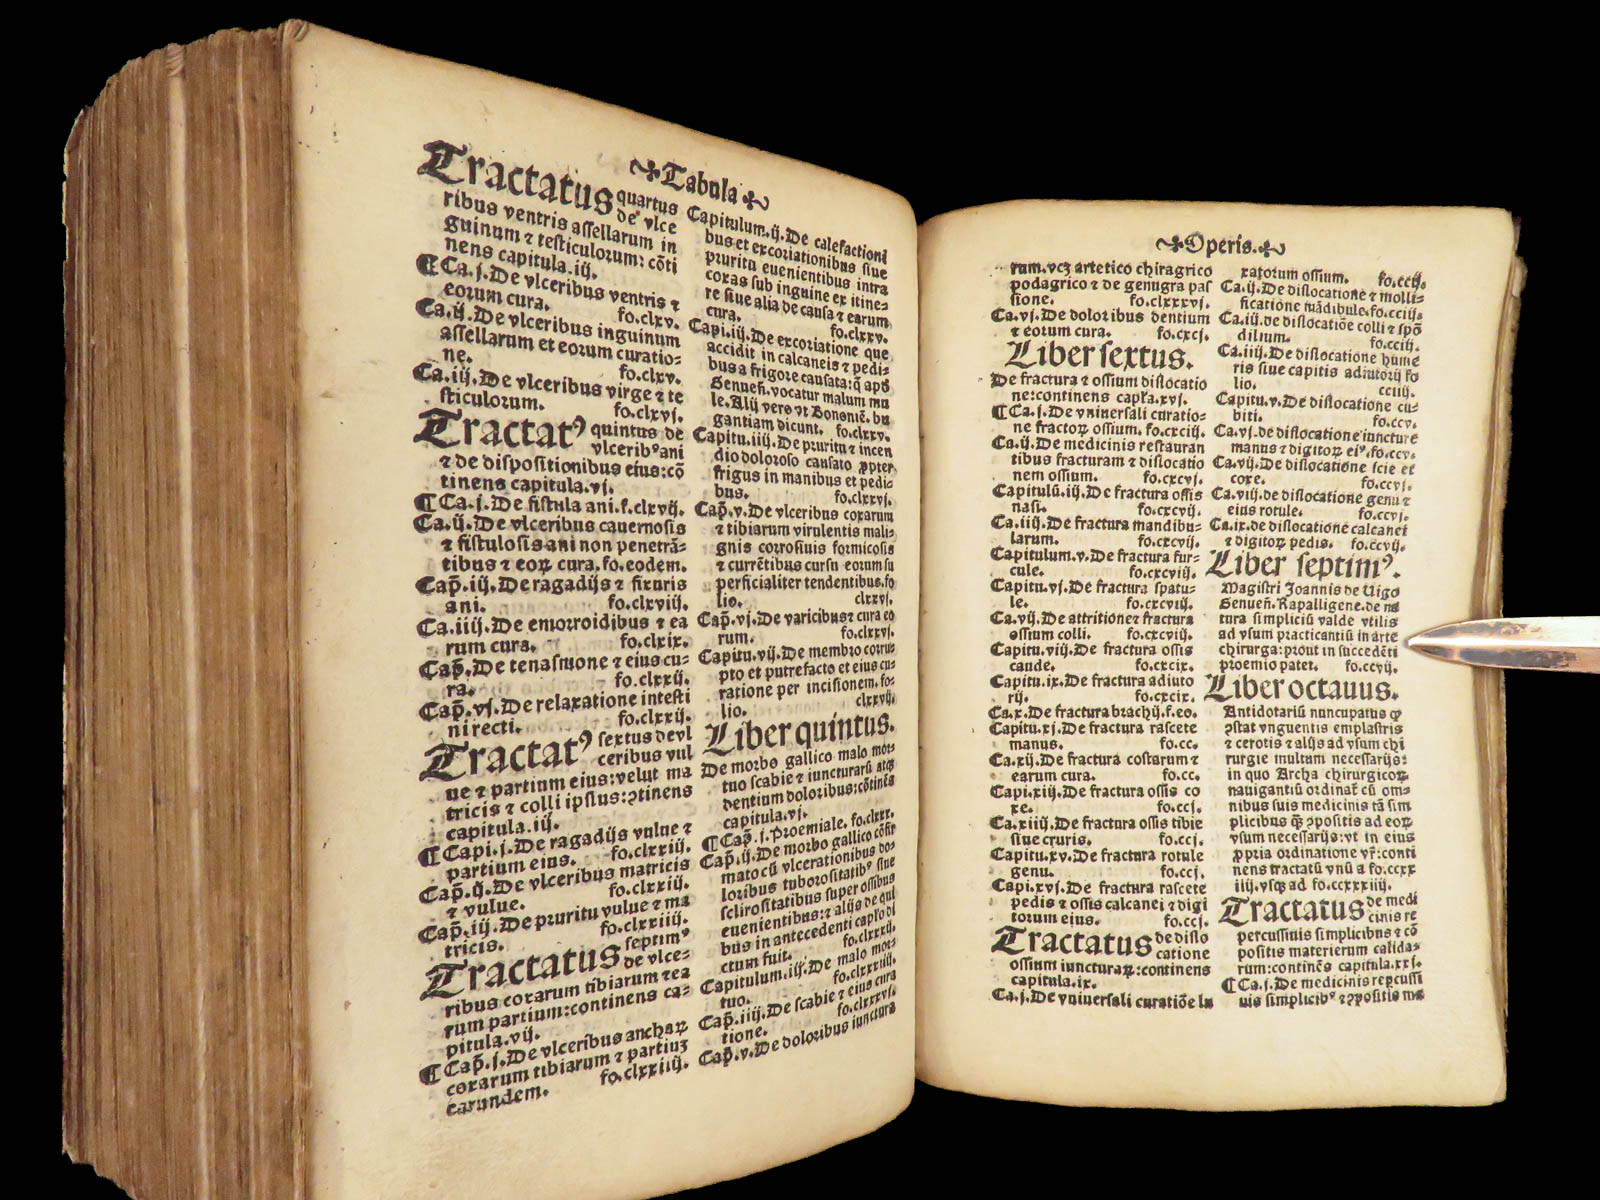 Tabula
Tractatus quartus
de vlce
ribus ventris assellarum in
guinum ⁊ testiculorum: cōti
nens capitula.iij.
¶Ca.j.De vlceribus ventris ⁊
eorum cura. fo.clxv.
Ca.ij.De vlceribus inguinum
assellarum et eorum curatio-
ne. fo.clxv.
Ca.iij.De vlceribus virge ⁊ te
sticulorum. fo.clxvj.
Tractatꝰ quintus de
vlceribꝰ ani
⁊ de dispositionibus eius:cō
tinens capitula.vj.
¶Ca.j.De fistula ani.f.clxvij.
Ca.ij.De vlceribus cauernosis
⁊ fistulosis ani non penetrā-
tibus ⁊ eoꝝ cura.fo.eodem.
Cap̄.iij.De ragadijs ⁊ fixuris
ani. fo.clxviij.
Ca.iiij.De emorroidibus ⁊ ea
rum cura. fo.clxix.
Cap̄.De tenasmone ⁊ eius cu-
ra. fo.clxxij.
Cap̄.vj.De relaxatione intesti
ni recti. fo.clxxij.
Tractatꝰ sextus de vl
ceribus vul
ue ⁊ partium eius:velut ma
tricis ⁊ colli ipsius:ↄtinens
capitula.iij.
¶Capi.j.De ragadijs vulue ⁊
partium eius. fo.clxxiij.
Cap̄.ij.De vlceribus matricis
⁊ vulue. fo.clxxiij.
Cap̄.iij.De pruritu vulue ⁊ ma
tricis. fo.clxxiiij.
Tractatus septimꝰ
de vlce-
ribus coxarum tibiarum ⁊ ea
rum partium:continens ca-
pitula.vij.
¶Cap̄.j.De vlceribus anchaꝝ
coxarum tibiarum ⁊ partiuʒ
earundem. fo.clxxiiij.
Capitulum.ij.De calefactioni
bus et excoriationibus siue
pruritu euenientibus intra
coxas sub inguine ex itine-
re siue alia de causa ⁊ earum
cura. fo.clxxv.
Capi.iij.De excoriatione que
accidit in calcaneis ⁊ pedi-
bus a frigore causata:q̄ apđ
Genueñ.vocatur malum mu
le.Alij vero vt Bononiē. bu
gantiam dicunt. fo.clxxv.
Capitu.iiij.De pruritu ⁊ incen
dio doloroso causato ꝓpter
frigus in manibus et pedi-
bus. fo.clxxvj.
Cap̄.v.De vlceribus coxarum
⁊ tibiarum virulentis mali-
gnis corrosiuis formicosis
⁊ currētibus cursu eorum su
perficialiter tendentibus.fo
lio. clxxvj.
Cap̄.vj.De varicibus ⁊ cura eo
rum. fo.clxxvj.
Capitu.vij.De membro corru-
pto et putrefacto et eius cu-
ratione per incisionem.fo-
lio. clxxvij.
Liber quintus.
De morbo gallico malo mor-
tuo scabie ⁊ iuncturarū atqꝫ
dentium doloribus:cōtinēs
capitula.vj.
¶Cap̄.j.Proemiale. fo.clxxx.
Cap̄.ij.De morbo gallico cōfir
mato cū vlcerationibus do-
loribus tuborositatibꝰ siue
sclirositatibus super ossibus
euenientibus:⁊ alijs de qui
bus in antecedenti capło di
ctum fuit. fo.clxxxij.
Capitulum.iij.De malo mor-
tuo. fo.clxxxiiij.
Cap̄.iiij.De scabie ⁊ eius cura
tione. fo.clxxxvj.
Cap̄.v.De doloribus iunctura
Operis.
rum.vcʒ artetico chiragrico
podagrico ⁊ de genugra pas
sione. fo.clxxxvj.
Ca.vj.De doloribus dentium
⁊ eorum cura. fo.cxcj.
Liber sextus.
De fractura ⁊ ossium dislocatio
ne:continens capła.xvj.
¶Ca.j.De vniuersali curatio-
ne fractoꝝ ossium. fo.cxciij.
Ca.ij.De medicinis restauran
tibus fracturam ⁊ dislocatio
nem ossium. fo.cxcvj.
Capitulū.iij.De fractura ossis
nasi. fo.cxcvij.
Ca.iiij.De fractura mandibu-
larum. fo.cxcvij.
Capitulum.v.De fractura fur-
cule. fo.cxcviij.
Capitu.vj.De fractura spatu-
le. fo.cxcviij.
Ca.vij.De attritione ⁊ fractura
ossium colli. fo.cxcviij.
Capitu.viij.De fractura ossis
caude. fo.cxcix.
Capitu.ix.De fractura adiuto
rij. fo.cxcix.
Ca.x.De fractura brachij.f.eo.
Capitu.xj.De fractura rascete
manus. fo.cc.
Ca.xij.De fractura costarum ⁊
earum cura. fo.cc.
Capi.xiij.De fractura ossis co
xe. fo.ccj.
Ca.xiiij.De fractura ossis tibie
siue cruris. fo.ccj.
Capitu.xv.De fractura rotule
genu. fo.ccj.
Capi.xvj.De fractura rascete
pedis ⁊ ossis calcanei ⁊ digi
torum eius. fo.ccj.
Tractatus de dislo
catione
ossium iuncturaꝝ:continens
capitula.ix.
Ca.j.De vniuersali curatiōe lu
xatorum ossium. fo.ccij.
Ca.ij.De dislocatione ⁊ molli-
ficatione mādibule.fo.cciij.
Ca.iij.de dislocatiōe colli ⁊ spō
dilium. fo.cciij.
Ca.iiij.De dislocatione hume
ris siue capitis adiutorij fo
lio. cciiij.
Capitu.v.De dislocatione cu-
biti. fo.ccv.
Ca.vj.de dislocatione iuncture
manus ⁊ digitoꝝ eiꝰ.fo.ccv.
Ca.vij.De dislocatione scie et
coxe. fo.ccvj.
Ca.viij.de dislocatione genu ⁊
eius rotule. fo.ccvj.
Ca.ix.de dislocatione calcanei
⁊ digitoꝝ pedis. fo.ccvij.
Liber septimꝰ.
Magistri Joannis de Uigo
Genueñ.Rapalligene.de na
tura simpliciū valde vtilis
ad vsum practicantiū in arte
chirurga:prout in succedēti
proemio patet. fo.ccvij.
Liber octauus.
Antidotariū nuncupatus qꝫ
ↄstat vnguentis emplastris
⁊ cerotis ⁊ alijs ad vsum chi
rurgie multum necessarijs:
in quo Archa chirurgicoꝝ
nauigantiū ordinat̄ cū om-
nibus suis medicinis tā sim
plicibus q̄ ↄpositis ad eoꝝ
vsum necessarijs:vt in eius
ꝓpria ordinatione vr̄:conti
nens tractatū vnū a fo.ccxx
iiij.vsqꝫ ad fo.ccxxxiiij.
Tractatus de medi
cinis re
percussiuis simplicibus ⁊ cō
positis materierum calida-
rum:continēs capitula.xxj.
¶Ca.j.De medicinis repcussi
uis simplicibꝰ ⁊ ↄpositis ma